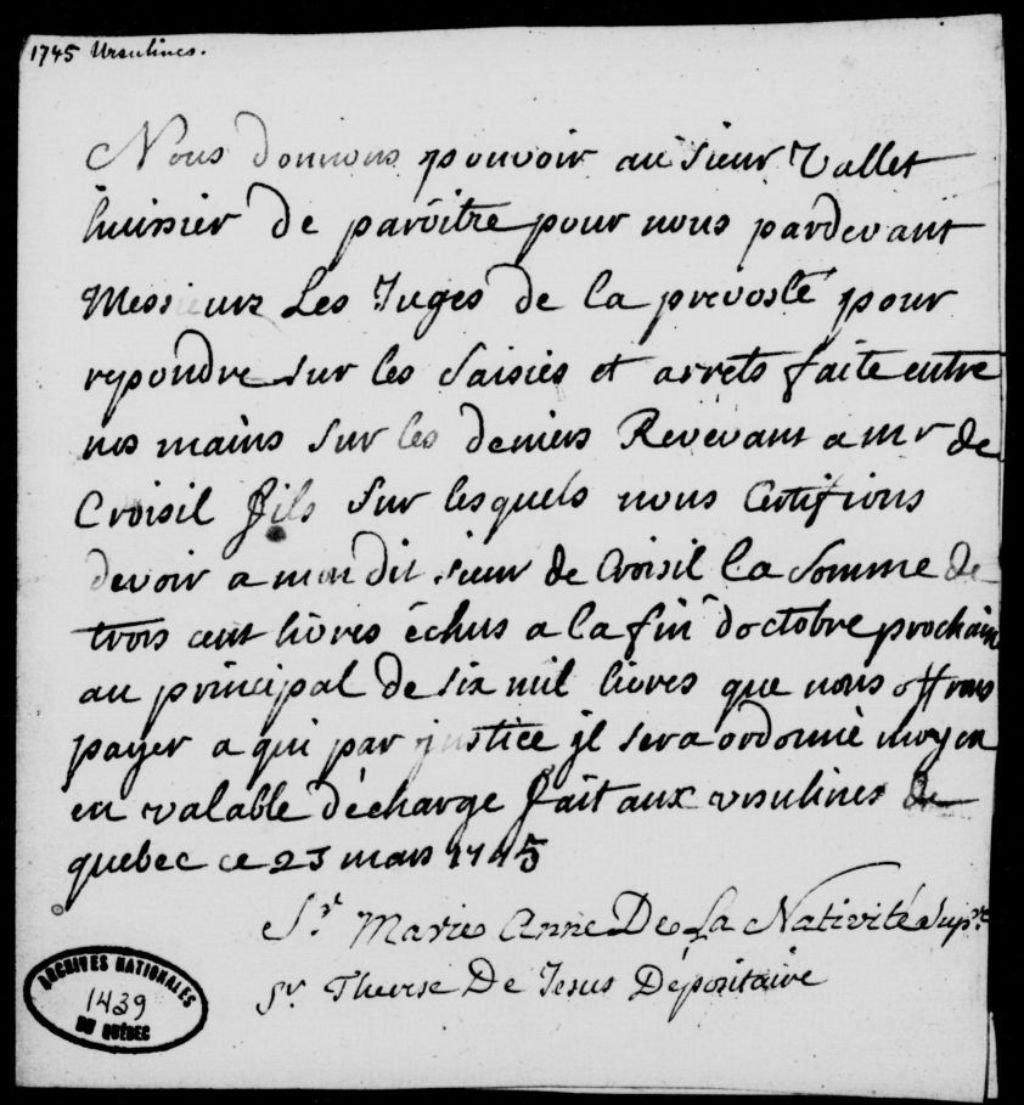 1745 Ursulines.
Nous donnons pouvoir au sieur Vallet
huissier de paroitre pour nous pardevant
Messieurs Les Juges de la prevosté pour
repondre sur les saisies et arrets faite entre
nos mains sur les deniers Revevant a mr de
Croisil fils sur lesquels nous Certifions
devoir a mon dit sieur de Croisil la somme de
trois cent livres échus a la fin doctobre prochain
au principal de six mil livres que nous offrons
payer a qui par justice jl sera ordonné moyen
en valable décharge fait aux ursulines de
quebec ce 23 mars 1745
Sr. Marie Anne De La Nativité Supre
Sr Therese De Jesus Dépositaire
ARCHIVES NATIONALES
1439
DU QUÉBEC